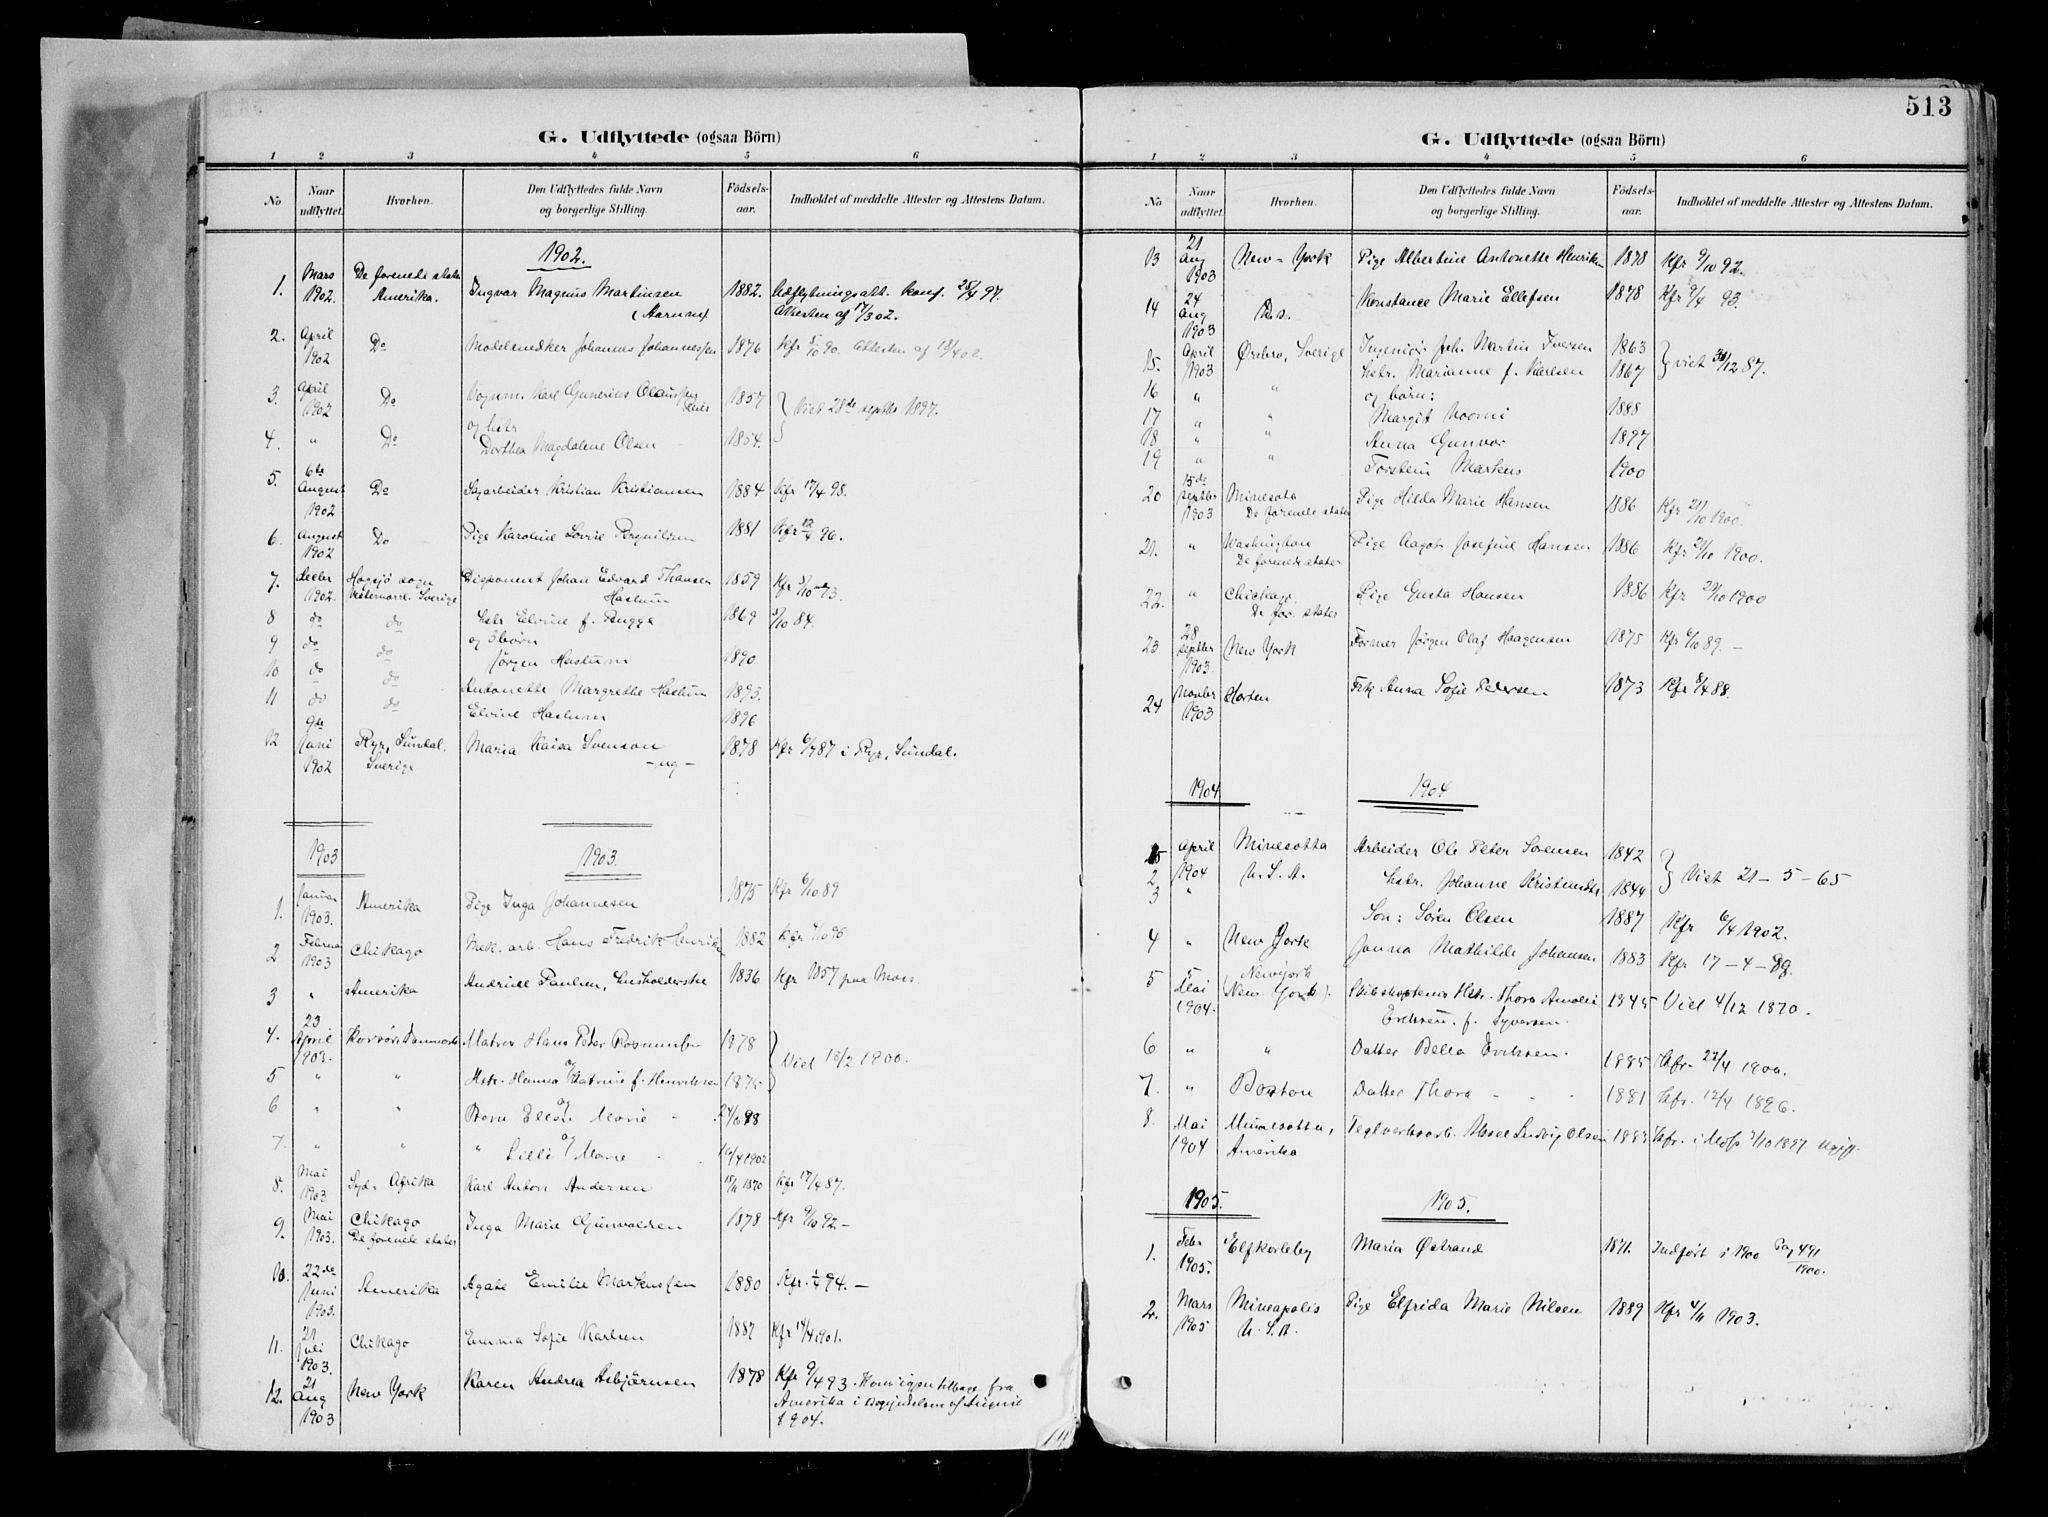 G. Udflyttede (ogsaa Börn)
1 2 3 4 5 6
No Naar udflyttet. Hvorhen. Den Udflyttedes fulde Navn og borgerlige Stilling. Födsels-aar. Indholdet af meddelte Attester og Attestens Datum.
1902.
1. Mars 1902. De forenede stater Amerika. Ingvar Magnus Martinsen 1882. Udflytningsatt. konf. 25/4 97.
(Aarum) Attesten af 17/3 02.
2. April 1902 Do Modelsnedker Johannes Johannessen 1876 Kfr 5/10 90. Attesten af 18/4 02.
3. April 1902 Do Vognm. Karl Gunerius Olaussen 1857 } Viet 28de septbr 1897.
og hstr
4. " Do Dorthea Magdalene Olsen 1854.
5. 6te August 1902 Do Sagarbeider Kristian Kristiansen 1884 Kfr 17/4 98.
6. August 1902 Do Pige Karoline Lovise 1881 Kfr 12/4 96.
7. 1902. Hogsjö sogn Sverige Disponent Johan Edvard Thansen Haslum 1859 Kfr 5/10 73.
8 do do hstr Elvine f. Bugge 1869 5/10 84.
9 do do og 3 børn
Jörgen Haslum 1890
10 do do Antonette Margrethe Haslum 1893.
11 do do Elvine Haslum 1896
12 9de Juni 1902 Ryr, Sundal. Sverige Maria Kaisa Svenson 1878 Kfr 6/7 87 i Ryr, Sundal.
- ug -
1903 1903.
1. Januar 1903. Amerika Pige Inga Johannesen 1875 Kfr 6/10 89
2 Februar 1903 Chikago Mek. arb. Hans Fredrik Henriksen 1882 Kfr 4/10 96
3 " Amerika Andrine Paulsen, husholderske 1836 Kfr 1857 paa Moss.
4. 23 April 1903. Korsör Danmark Matros Hans Peter Rasmussen 1878 } Viet 18/2 1900.
5 " " Hstr. Hanna Katrine f. Henriksen 1875
6 " " Børn Ellen Marie 24/6 98
7. " " " Lilli Marie 16/4 1902
8. Mai 1903 Syd-Afrika Karl Anton Andersen 18/11 1870 Kfr 17/4 87.
9. Mai 1903. Chikago De forenede stater Inga Marie Gunvaldsen 1878 Kfr 9/10 92 -
10. 22de Juni 1903. Amerika Agate Emilie Markussen 1880 Kfr. 1/4 94. -
11. 21 Juli 1903. Chikago Emma Sofie Karlsen 1887 Kfr 14/4 1901.
12. 21 Aug 1903 New York Karen Andrea Asbjørnsen 1878 Kfr 9/4 93. Kom igjen tilbage fra
Amerika i Begyndelsen af August
1904.
513
G. Udflyttede (ogsaa Börn)
1 2 3 4 5 6
No Naar udflyttet. Hvorhen. Den Udflyttedes fulde Navn og borgerlige Stilling. Födsels-aar. Indholdet af meddelte Attester og Attestens Datum.
13 21 Aug 1903 New-York Pige Albertine Antonette Henriksen 1878 Kfr 9/10 92.
14 24 Aug 1903 Do. Konstance Marie Ellefsen 1878 Kfr 9/4 93.
15 April 1903 Ørebro, Sverige Ingeniør Joh. Martin Iversen 1863 } viet 30/12 87.
16 " " hstr. Marianne f. Karlsen 1867
og børn:
17 " " Margit Noomi 1888
18 " " Anna Gunvor 1897
19 " " Torstein Markus 1900
20 15de septbr 1903 Minesota De forenede stater Pige Hilda Marie Hansen 1886 Kfr 21/10 1900.
21. " Washington De forenede stater Pige Aagot Josefine Hansen 1886 Kfr 21/10 1900.
22. " Chickago. De for. stater Pige Gusta Hansen 1886 Kfr 21/10 1900
23 28 septbr 1903. New York Former Jørgen Olaf Haagensen 1875 Kfr 6/10 89. -
24 Novbr 1903 Horten Frk Anna Sofie Pedersen 1873 Kfr 8/4 88.
1904. 1904
1 April 1904 Minesotta U.S.A. Arbeider Ole Peter Sørensen 1842 } Viet 21 - 5 - 65
2 hstr. Johanne Kristendtr 1844
3 " Søn: Søren Olsen 1887 Kfr 6/4 1902.
4 " New York Janna Mathilde Johansen 1883 Kfr 17 - 4 - 98.
5 5 Mai 1904. Newyork (New York). Skibskaptein Hstr. Thora Amalie 1845 Viet 4/12 1870.
Eriksen f. Syversen.
6 " " Datter Bella Eriksen. 1885 Kfr. 22/4 1900.
7. " Boston Datter Thora " 1881 Kfr. 12/4 1896.
8. Mai 1904 Minnesotta, Amerika Teglverksarb. Aksel Ludvig Olsen 1883 Kfr. i Moss 3/10 1897. Ugift.
1905. 1905.
1. Febr 1905. Elfkarleby Maria Østrand 1871. Indført i 1900 Pag 491/1900.
2. Mars 1905 Mineapolis U.S.A. Pige Elfrida Marie Nilsen 1889 Kfr 4/11 1903.